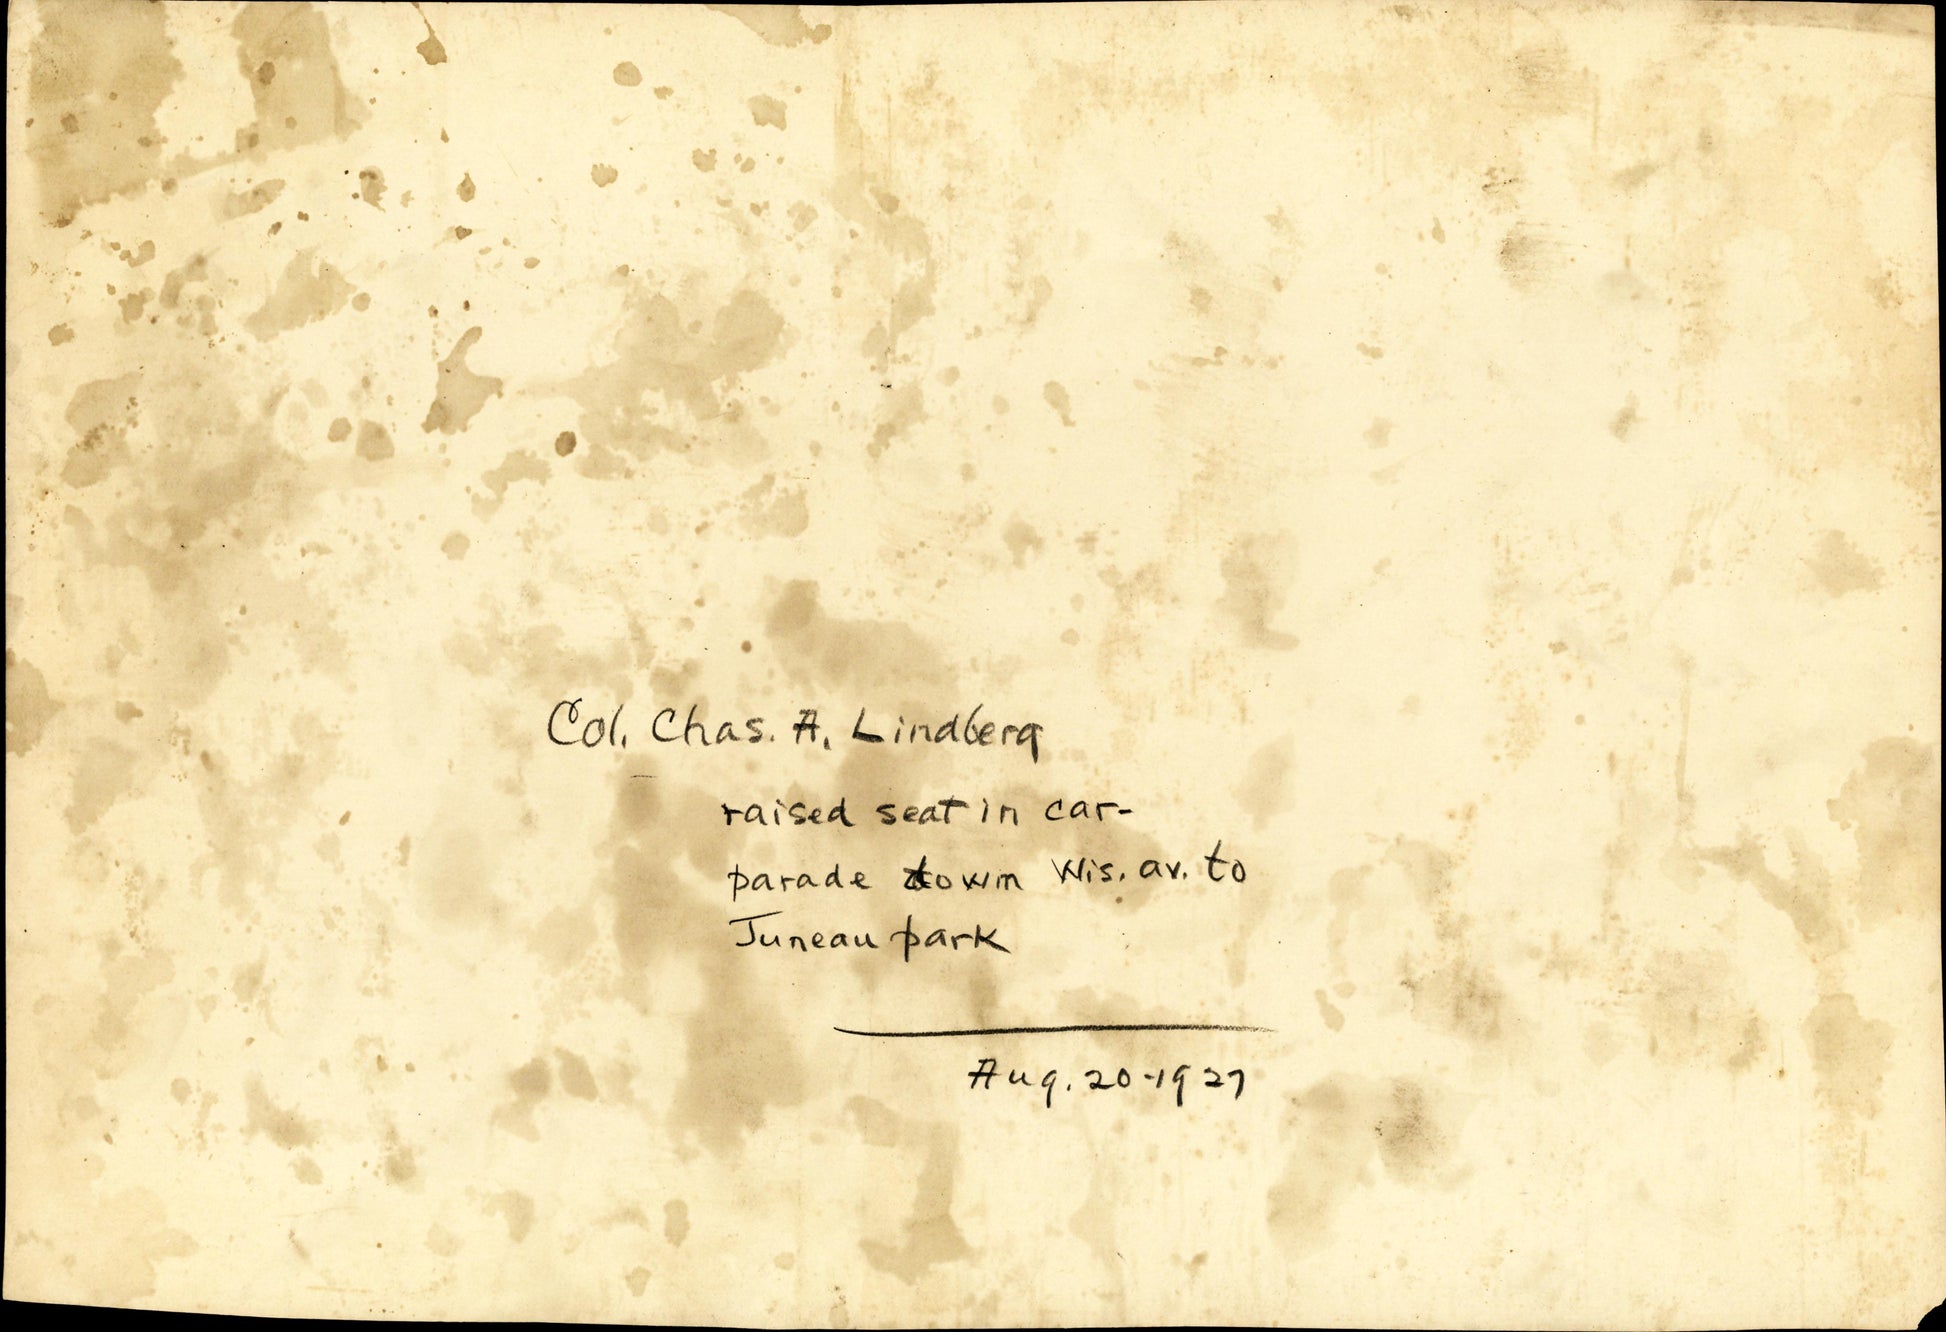 Col. Chas. A. Lindberg
raised seat in car-
parade down Wis. av. to
Juneau park
Aug. 20-1927